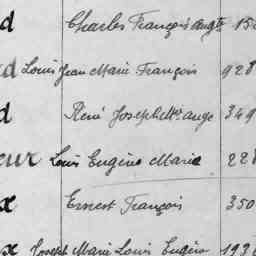 d Charles François Aug^te 15
d Louis Jean Marie François 928
d René Joseph M^ie ange 349
eur Louis Eugène Marie 228
x Ernest François 350
x Joseph Marie Louis Eugène 193